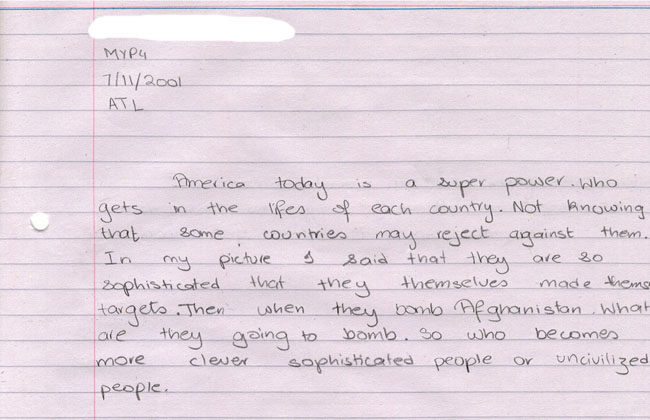 MYP4
7/11/2001
ATL
America today is a super power. Who
gets in the lifes of each country. Not knowing
that some countries may reject against them.
In my picture I said that they are so
sophisticated that they themselves made thems
targets. Then when they bomb Afghanistan. What
are they going to bomb. So who becomes
more clever sophisticated people or uncivilized
people.